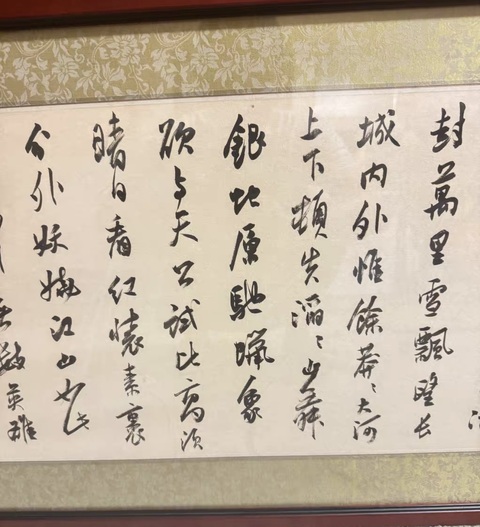 封萬里雪飄望长
城内外惟餘莽〻大河
上下頓失滔〻山舞
銀虵原馳蠟象
欲与天公試比高须
晴日看红裝素裹
分外妖嬈江山如此
無數英雄